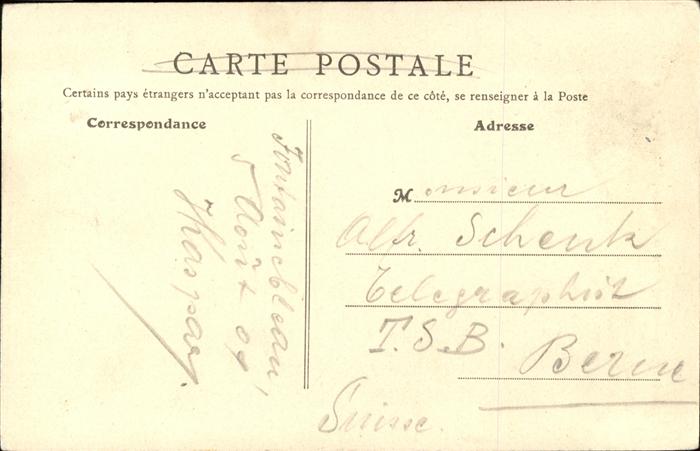 CARTE POSTALE
Certains pays étrangers n'acceptant pas la correspondance de ce côté, se renseigner à la Poste
Correspondance
Adresse
Fontainebleau,
5 Août 09
Monsieur
Alfr. Schenk
Telegraphist
T.S.B. Berne
Suisse.